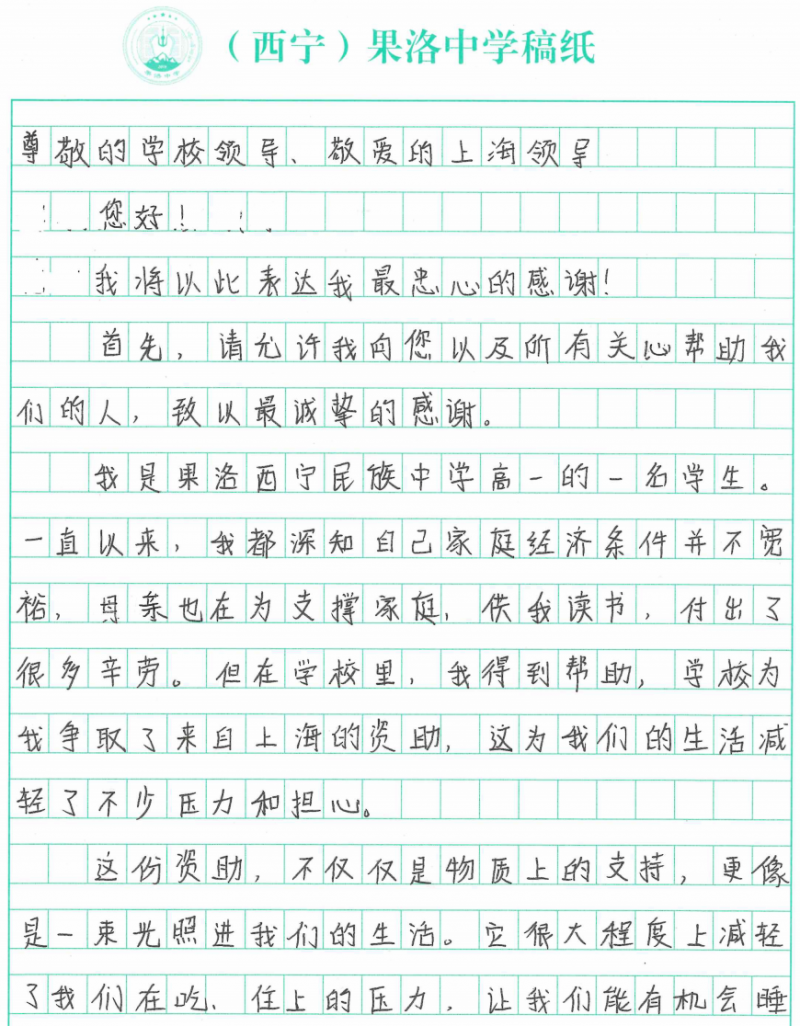 （西宁）果洛中学稿纸
尊敬的学校领导、敬爱的上海领导
您好！
我将以此表达我最忠心的感谢！
首先，请允许我向您以及所有关心帮助我
们的人，致以最诚挚的感谢。
我是果洛西宁民族中学高一的一名学生。
一直以来，我都深知自己家庭经济条件并不宽
裕，母亲也在为支撑家庭、供我读书，付出了
很多辛劳。但在学校里，我得到帮助，学校为
我争取了来自上海的资助，这为我们的生活减
轻了不少压力和担心。
这份资助，不仅仅是物质上的支持，更像
是一束光照进我们的生活。它很大程度上减轻
了我们在吃、住上的压力，让我们能有机会睡